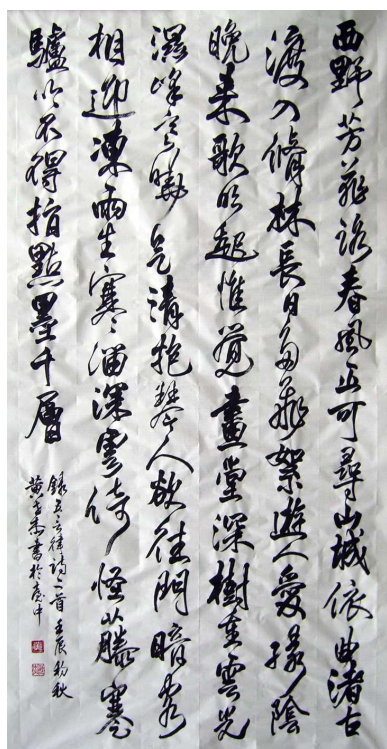 西野芳菲路春風正可尋山城依曲渚古
渡入脩林長日多飛絮遊人愛綠陰
晚來歌吹起惟覺畫堂深樹重雲光
濕峰高曉氣清抱琴人欲往門暗客
相迎凍雨生寒溜深雲倚怪藤蹇
驢吟不得指點墨千層
錄五言律詩二首 壬辰初秋
黃書於中